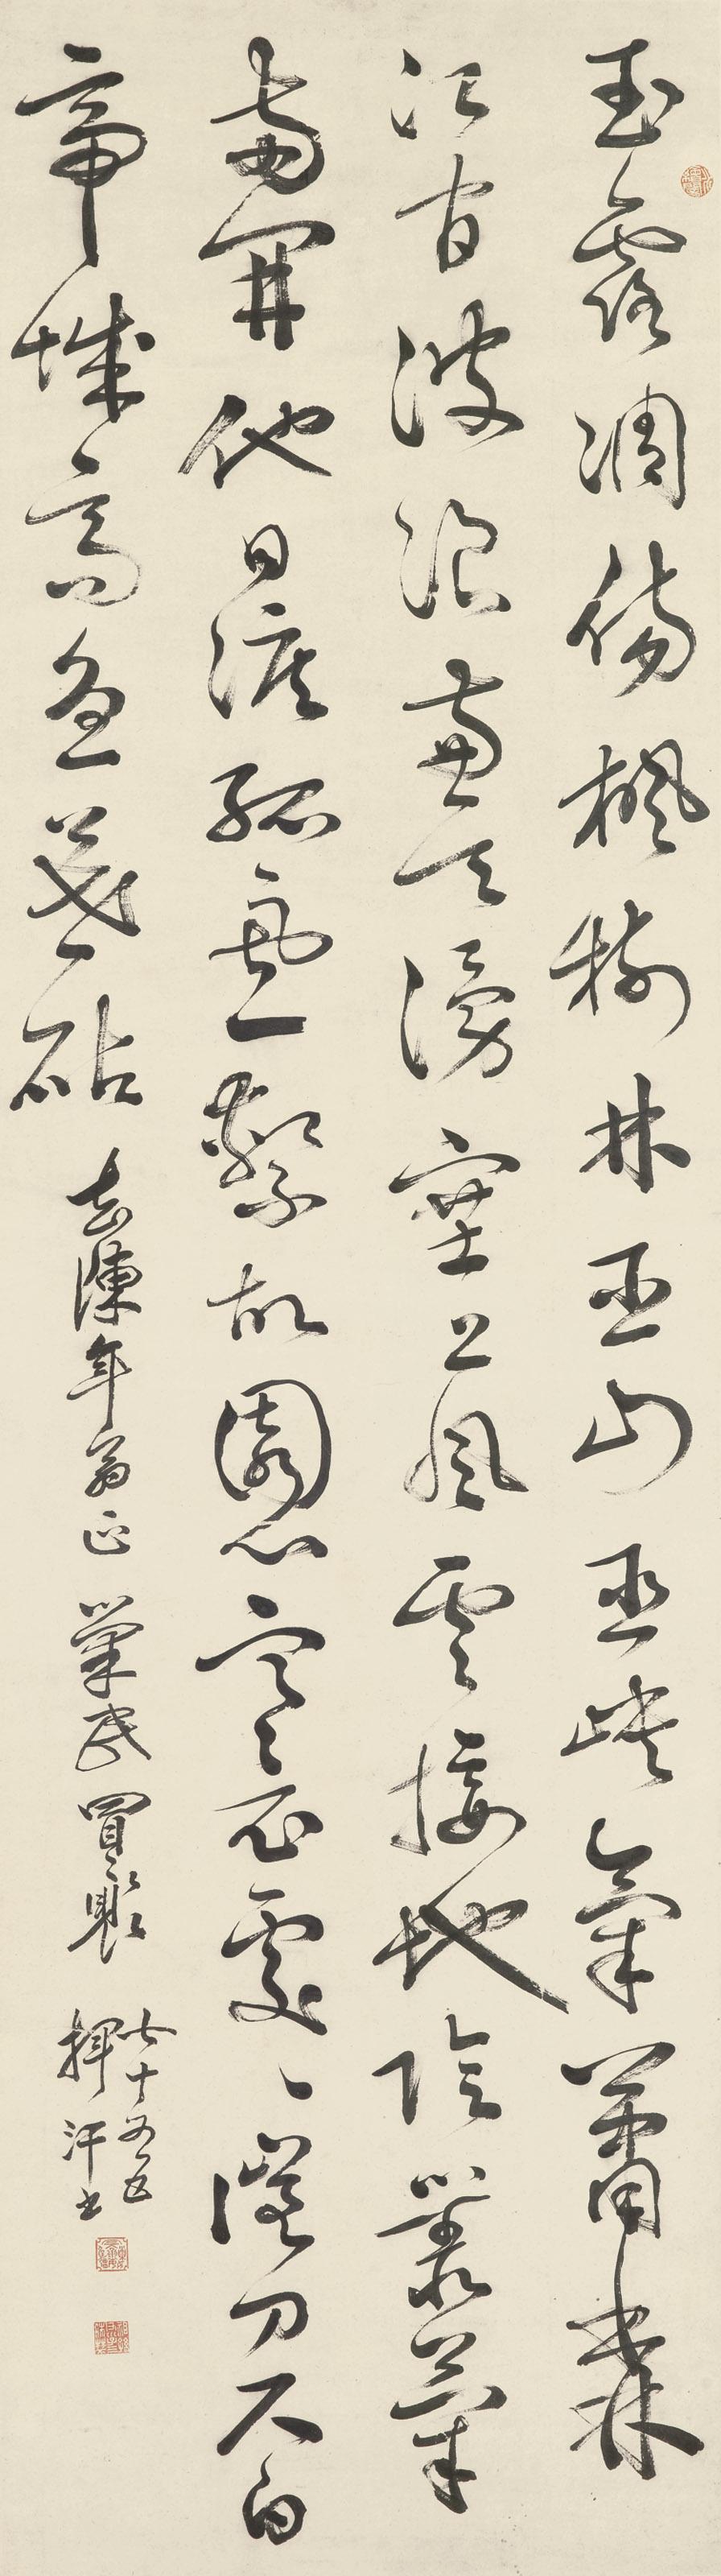 玉露凋傷楓樹林巫山巫峽氣蕭森
江間波浪兼天湧塞上風雲接地陰叢菊
兩開他日淚孤舟一繫故園心寒衣處々催刀尺白
帝城高急暮砧 陳年翁正
七十又五
揮汗書